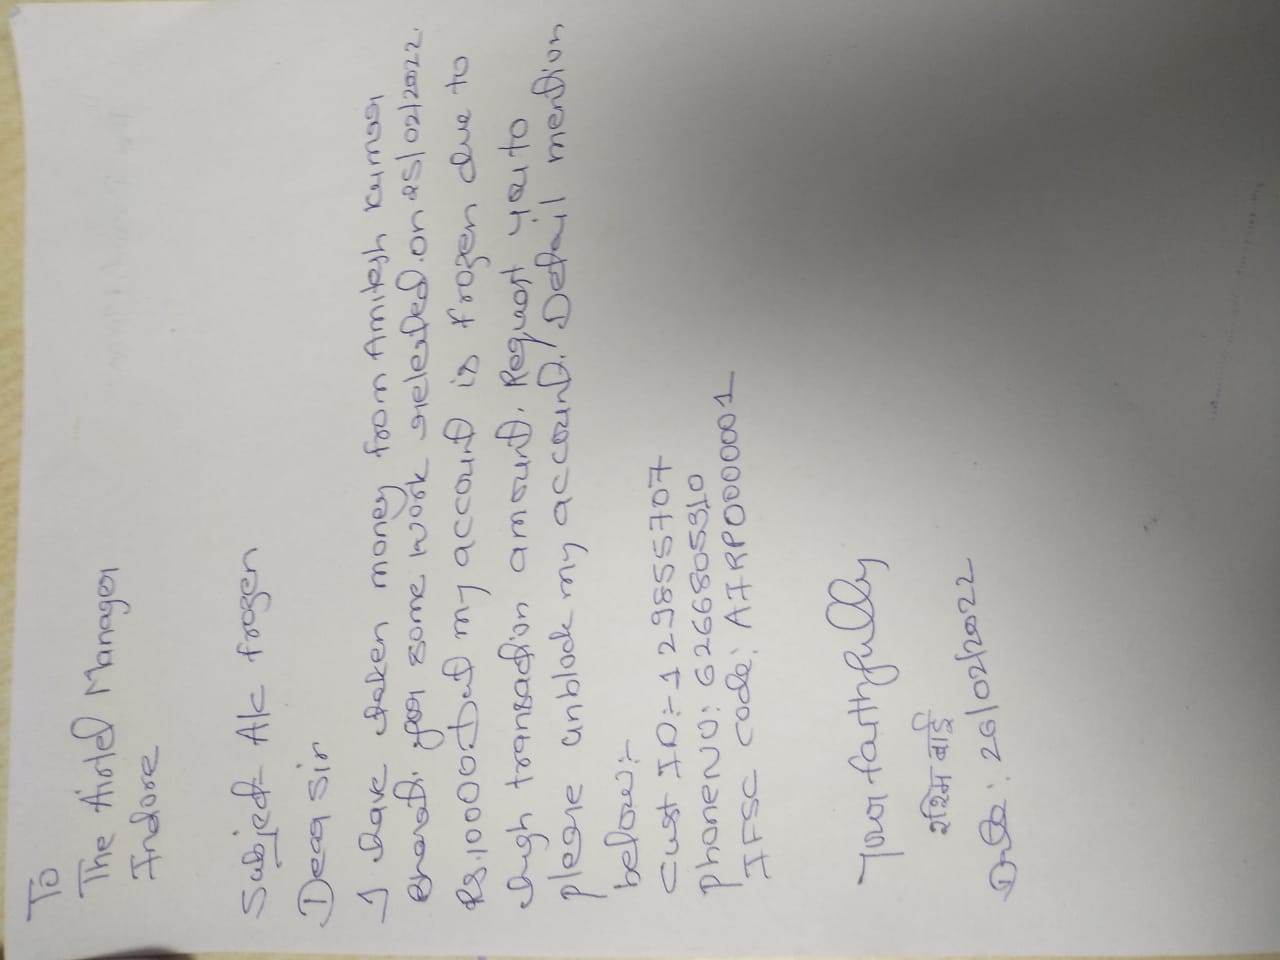 To
The Airtel Manager
Indore
Subject- A/c frozen
Dear Sir
I have taken money from Amitesh Kumar
for some work related.on 25/02/2022.
Rs.10000 but my account is frozen due to
high transaction amount. Request you to
please unblock my account. Detail mention
below:-
Cust ID:- 129855707
PhoneNO: 6266805910
IFSC code: AIRP0000001
Your faithfully
रश्मि बाई
Date: 26/02/2022